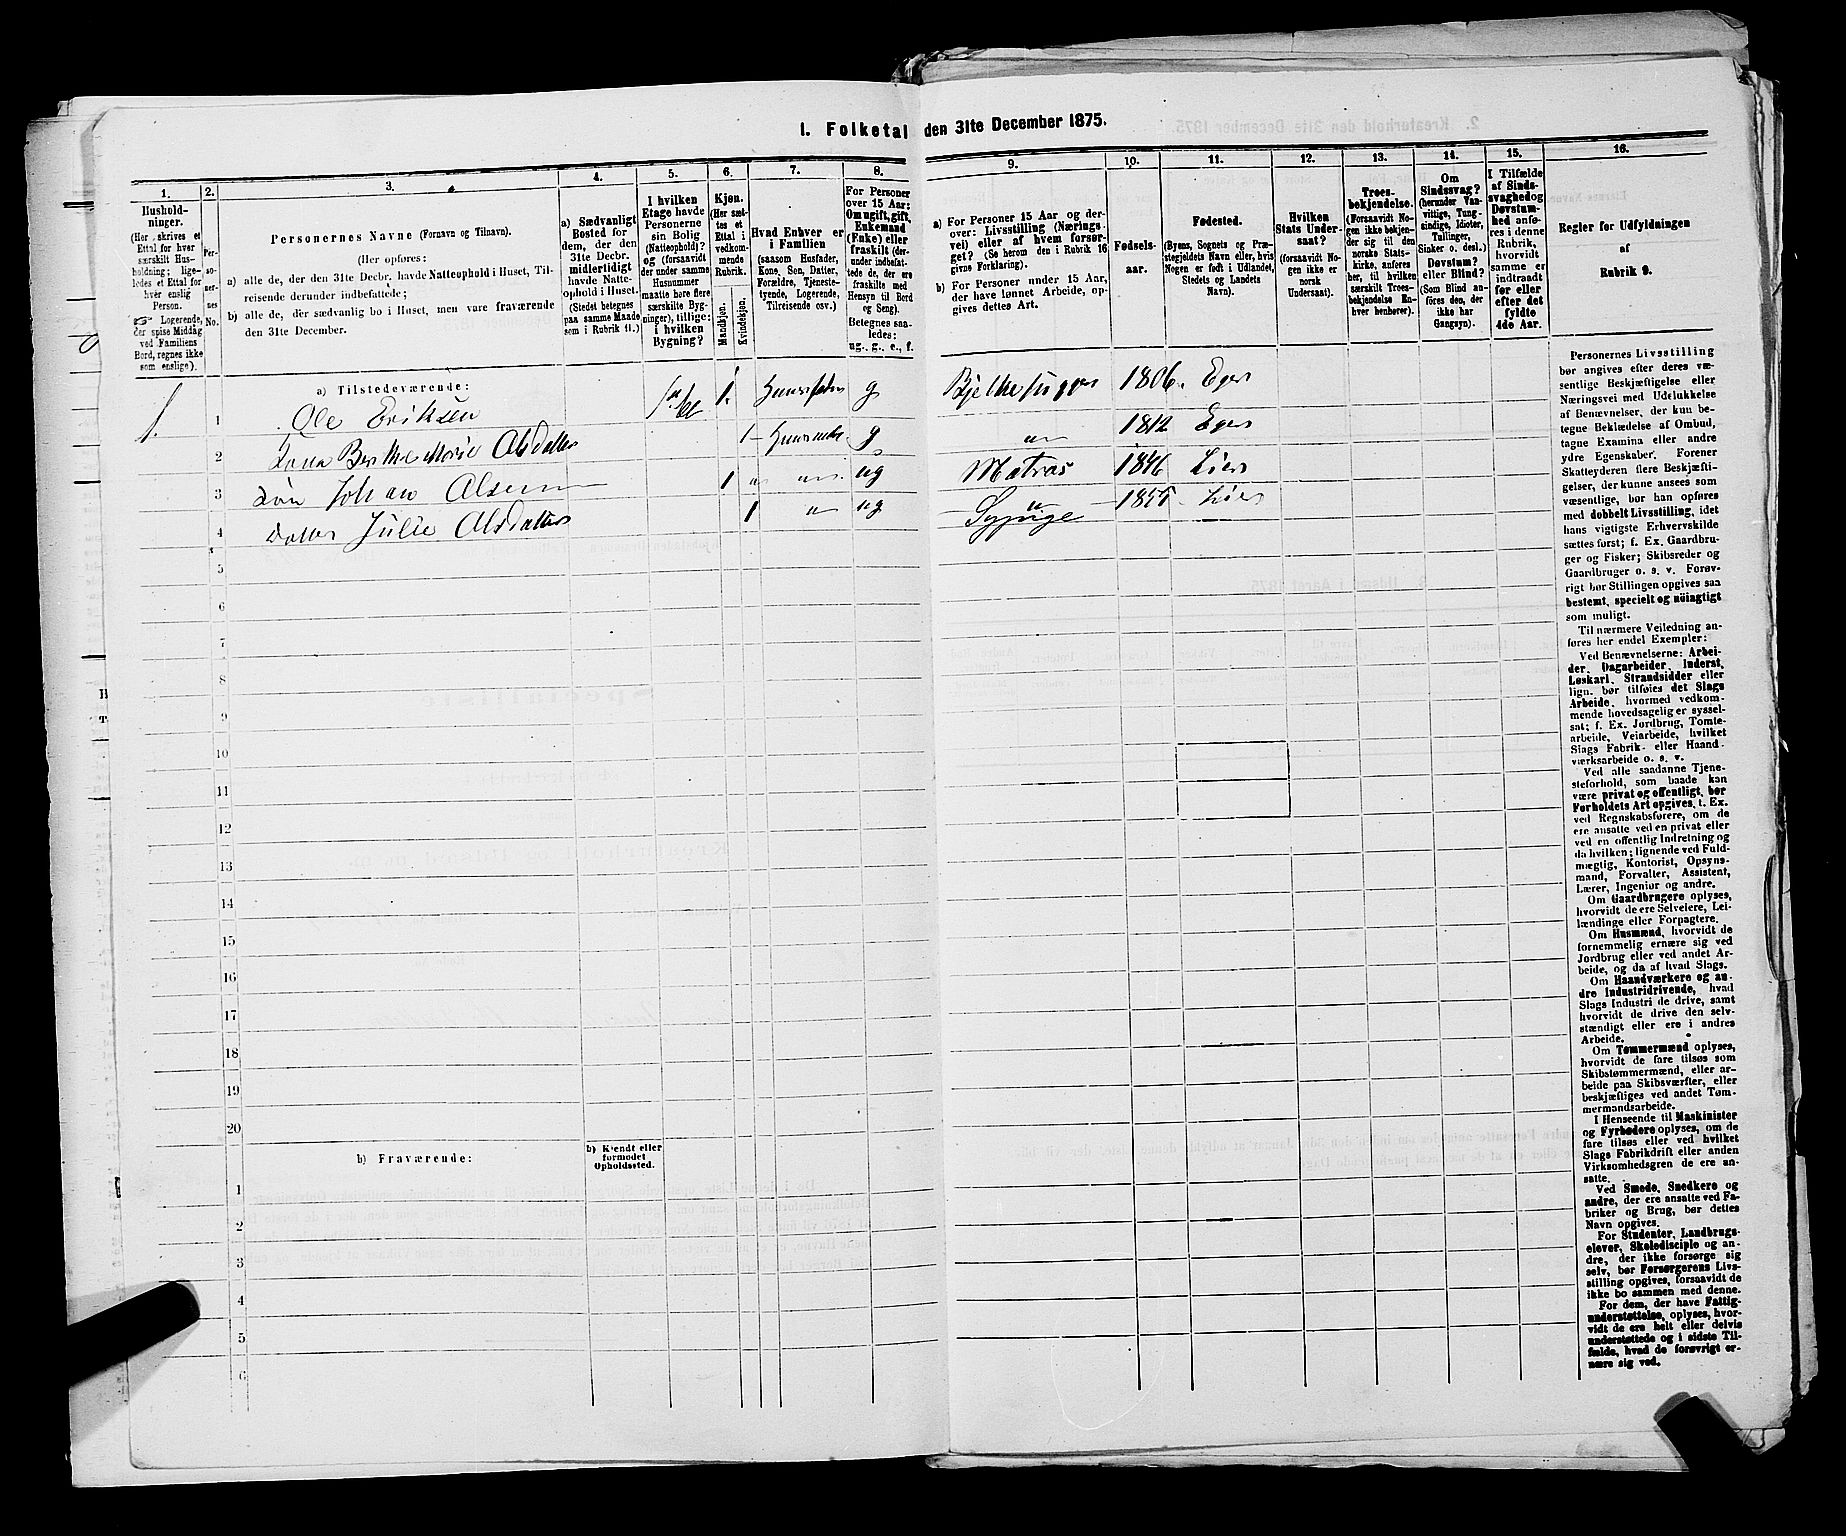 I. Folketal den 31te December 1875.
1. 2. 3. 4. 5. 6. 7. 8. 9. 10. 11. 12. 13. 14. 15. 16.
Hushold-
ninger.
(Her skrives et
Ettal for hver
særskilt Hus-
holdning; lige-
ledes et Ettal for
hver enslig
Person.
☞ Logerende,
der spise Middag
ved Familiens
Bord, regnes ikke
som enslige).
Per-
so-
ner-
nes
No.
Personernes Navne (Fornavn og Tilnavn).
(Her opføres:
a) alle de, der den 31te Decbr. havde Natteophold i Huset, Til-
reisende derunder indbefattede;
b) alle de, der sædvanlig bo i Huset, men vare fraværende
den 31te December.
a) Sædvanligt
Bosted for
dem, der den
31te Decbr.
midlertidigt
havde Natte-
ophold i Huset.
(Stedet betegnes
paa samme Maade
som i Rubrik 11.)
I hvilken
Etage havde
Personerne
sin Bolig
(Natteophold)?
og (forsaavidt
der under samme
Husnummer
maatte høre flere
særskilte Byg-
ninger), tillige:
i hvilken
Bygning?
Kjøn.
(Her sæt-
tes et
Ettal i
vedkom-
mende
Rubrik.
Mandkjøn.
Kvindekjøn.
Hvad Enhver er
i Familien
(saasom Husfader,
Kone, Søn, Datter,
Forældre, Tjeneste-
tyende, Logerende,
Tilreisende osv.)
For Personer
over 15 Aar:
Om ugift, gift,
Enkemand
(Enke) eller
fraskilt (der-
under indbefat-
tede de, der ere
fraskilte med
Hensyn til Bord
og Seng).
Betegnes saa-
ledes:
ug., g., e., f.
a) For Personer 15 Aar og der-
over: Livsstilling (Nærings-
vei) eller af hvem forsør-
get? (Se herom den i Rubrik 16
givne Forklaring).
b) For Personer under 15 Aar,
der have lønnet Arbeide, op-
gives dettes Art.
Fødsels-
aar.
Fødested.
(Byens, Sognets og Præ-
stegjeldets Navn eller, hvis
Nogen er født i Udlandet,
Stedets og Landets
Navn).
Hvilken
Stats Under-
saat?
(Forsaavidt No-
gen ikke er
norsk
Undersaat).
Troes-
bekjendelse.
(Forsaavidt No-
gen ikke bekjen-
der sig til den
norske Stats-
kirke, anføres
her, til hvilken
særskilt Troes-
bekjendelse En-
hver henhører).
Om
Sindssvag?
(herunder Van-
vittige, Tung-
sindige, Idioter,
Tullinger,
Sinker o. desl.)
Døvstum?
eller Blind?
(Som Blind an-
føres den, der
ikke har
Gangsyn).
I Tilfælde
af Sinds-
svaghed og
Døvstum-
hed anfø-
res i denne
Rubrik,
hvorvidt
samme er
indtraadt
før eller
efter det
fyldte
4de Aar.
Regler for Udfyldningen
af
Rubrik 9.
a) Tilstedeværende:
1. 1 Ole Eriksen 1. g 1806. Eger
2 Kona Berthe Marie Olsdatter 1 g " 1812 Eger
3 Søn Johan Olsen 1 " ug Matros 1846 Lier
4 Datter Julie Olsdatter 1 " ug Sypige 1855 Lier
5
6
7
8
9
10
11
12
13
14
15
16
17
18
19
20
b) Fraværende:
b) Kjendt eller
formodet
Opholdssted.
1
2
3
4
5
6
Personernes Livsstilling
bør angives efter deres væ-
sentlige Beskjæftigelse eller
Næringsvei med Udelukkelse
af Benævnelser, der kun be-
tegne Beklædelse af Ombud,
tagne Examina eller andre
ydre Egenskaber. Forener
Skatteyderen flere Beskjæfti-
gelser, der kunne ansees som
væsentlige, bør han opføres
med dobbelt Livsstilling, idet
hans vigtigste Erhvervskilde
sættes først; f. Ex. Gaardbru-
ger og Fisker; Skibsreder og
Gaardbruger o. s. v. Forøv-
rigt bør Stillingen opgives saa
bestemt, specielt og nöiagtigt
som muligt.
Til nærmere Veiledning an-
føres her endel Exempler:
Ved Benævnelserne: Arbei-
der, Dagarbeider, Inderst,
Løskarl, Strandsidder eller
lign. bør tilføies det Slags
Arbeide, hvormed vedkom-
mende hovedsagelig er syssel-
sat; f. Ex. Jordbrug, Tomte-
arbeide, Veiarbeide, hvilket
Slags Fabrik- eller Haand-
værksarbeide o. s. v.
Ved alle saadanne Tjene-
steforhold, som baade kan
være privat og offentligt, bør
Forholdets Art opgives, t. Ex.
ved Regnskabsførere, om de
ere ansatte ved en privat eller
ved en offentlig Indretning og
da hvilken; lignende ved Fuld-
mægtig, Kontorist, Opsyns-
mand, Forvalter, Assistent,
Lærer, Ingeniør og andre.
Om Gaardbrugere oplyses,
hvorvidt de ere Selveiere, Lei-
lændinge eller Forpagtere.
Om Husmænd, hvorvidt de
fornemmelig ernære sig ved
Jordbrug eller ved andet Ar-
beide, og da af hvad Slags.
Om Haandværkere og an-
dre Industridrivende, hvad
Slags Industri de drive, samt
hvorvidt de drive den selv-
stændigt eller ere i andres
Arbeide.
Om Tømmermænd oplyses,
hvorvidt de fare tilsøs som
Skibstømmermænd, eller ar-
beide paa Skibsværfter, eller
beskjæftiges ved andet Tøm-
mermandsarbeide.
I Henseende til Maskinister
og Fyrbødere oplyses, om de
fare tilsøs eller ved hvilket
Slags Fabrikdrift eller anden
Virksomhedsgren de ere an-
satte.
Ved Smede, Snedkere og
andre, der ere ansatte ved Fa-
briker og Brug, bør dettes
Navn opgives.
For Studenter, Landbrugs-
elever, Skoledisciple og an-
dre, der ikke forsørge sig
selv, bør Forsørgerens Livs-
stilling opgives, forsaavidt de
ikke bo sammen med denne.
For dem, der have Fattig-
understøttelse, oplyses, hvor-
vidt de ere helt eller delvis
understøttede og i sidste Til-
fælde, hvad de forøvrigt er-
nære sig ved.